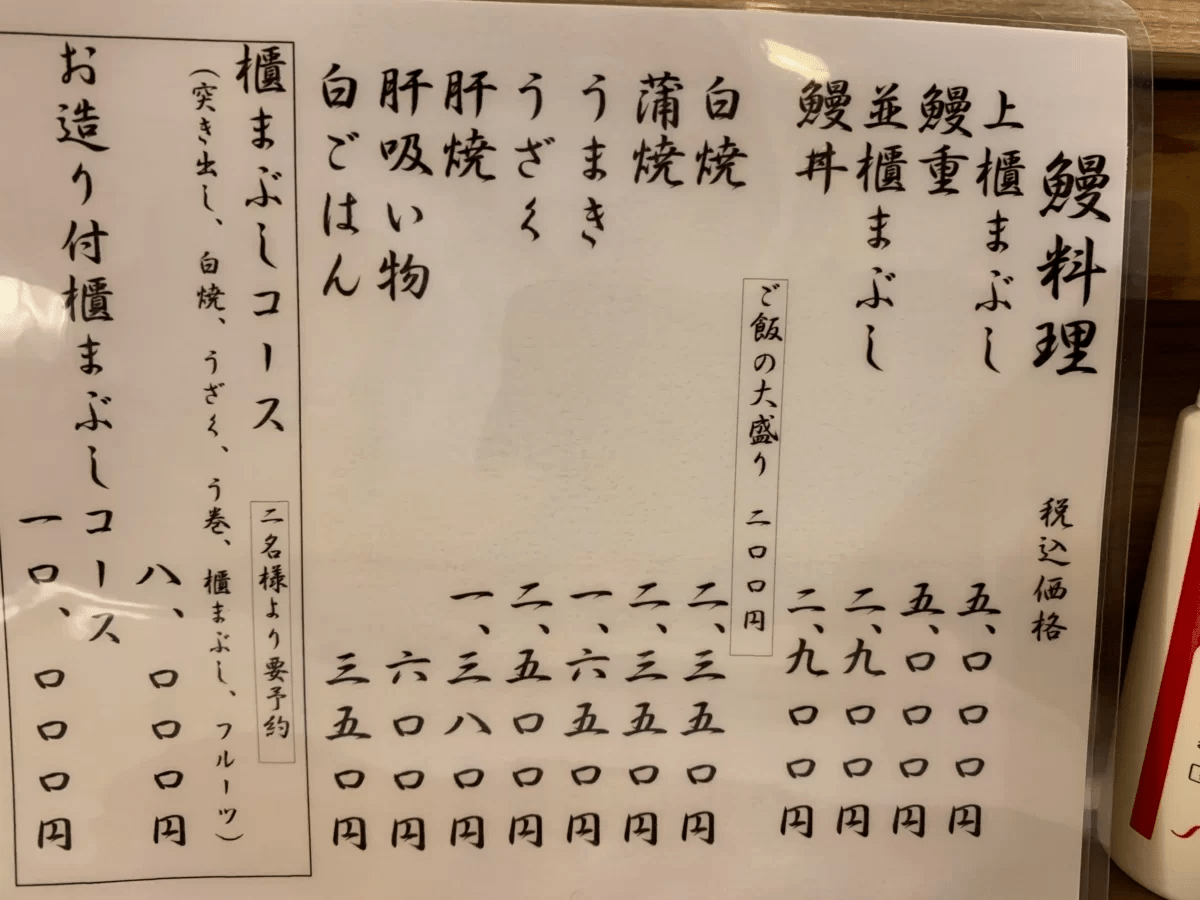 鰻料理 税込価格
上櫃まぶし 五、〇〇〇円
鰻重 五、〇〇〇円
並櫃まぶし 二、九〇〇円
鰻丼 二、九〇〇円
ご飯の大盛り 二〇〇円
白焼 二、三五〇円
蒲焼 二、三五〇円
うまき 一、六五〇円
うざく 二、五〇〇円
肝焼 一、三八〇円
肝吸い物 六〇〇円
白ごはん 三五〇円
櫃まぶしコース 二名様より要予約
(突き出し、白焼、うざく、う巻、櫃まぶし、フルーツ)
八、〇〇〇円
お造り付櫃まぶしコース
一〇、〇〇〇円